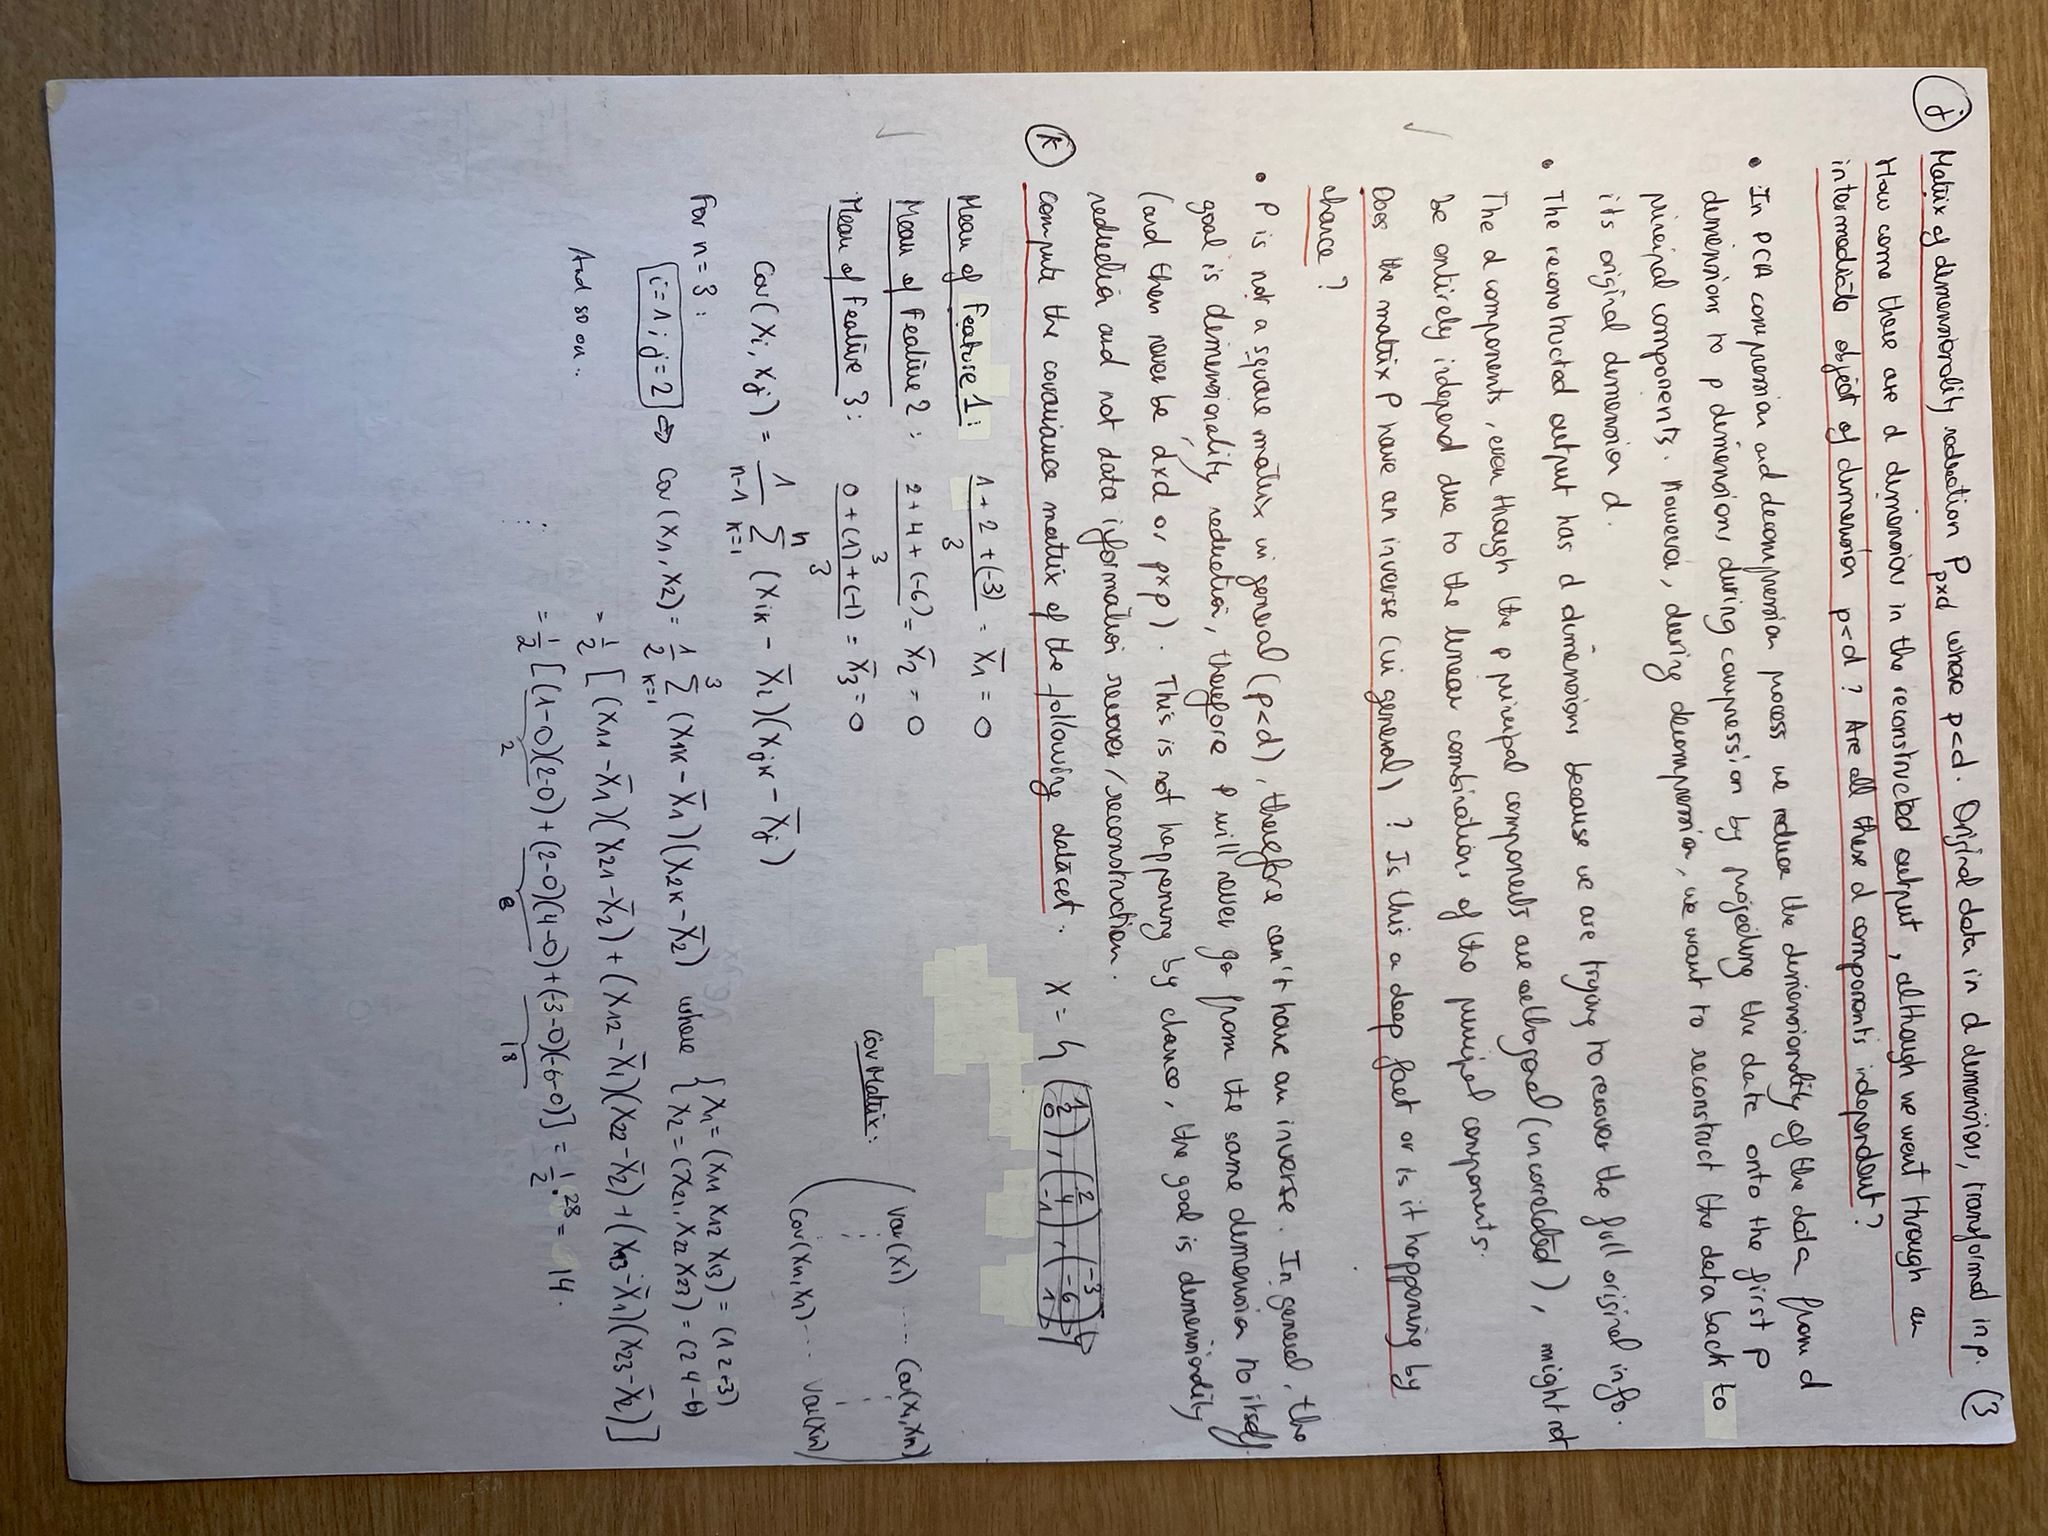 j) Matrix of dimensionality reduction P_{p×d} where p<d. Original data in d dimensions, transformed in p. (3
How come there are d dimensions in the reconstructed output, although we went through an
intermediate object of dimension p<d? Are all these d components independent?
• In PCA compression and decompression process we reduce the dimensionality of the data from d
dimensions to p dimensions during compression by projecting the data onto the first p
principal components. However, during decompression, we want to reconstruct the data back to
its original dimension d.
• The reconstructed output has d dimensions because we are trying to recover the full original info.
The d components, even though the p principal components are orthogonal (uncorrelated), might not
be entirely independ due to the linear combinations of the principal components.
Does the matrix P have an inverse (in general)? Is this a deep fact or is it happening by
chance?
• P is not a square matrix in general (p<d), therefore can't have an inverse. In general, the
goal is dimensionality reduction, therefore P will never go from the same dimension to itself
(and then never be d×d or p×p). This is not happening by chance, the goal is dimensionality
reduction and not data information recover/reconstruction.
k) Compute the covariance matrix of the following dataset. X = { (1 2 0), (2 4 -1), (-3 -6 1) }
Mean of Feature 1: (1 + 2 + (-3))/3 = X̄1 = 0
Mean of Feature 2: (2 + 4 + (-6))/3 = X̄2 = 0
Mean of Feature 3: (0 + (1) + (-1))/3 = X̄3 = 0
Cov Matrix: ( Var(X1) ..... Cov(X1,Xn) ⋮ ⋮ Cov(Xn,X1) .... Var(Xn) )
Cov(Xi, Xj) = 1/(n-1) Σ_{k=1}^{n} (Xik - X̄i)(Xjk - X̄j)
For n = 3:
i=1; j=2 ⇔ Cov(X1, X2) = 1/2 Σ_{k=1}^{3} (X1k - X̄1)(X2k - X̄2) where { X1 = (X11 X12 X13) = (1 2 -3)
X2 = (X21, X22 X23) = (2 4 -6)
= 1/2 [(X11 - X̄1)(X21 - X̄2) + (X12 - X̄1)(X22 - X̄2) + (X13 - X̄1)(X23 - X̄2)]
And so on..
= 1/2 [(1-0)(2-0) + (2-0)(4-0) + (-3-0)(-6-0)] = 1/2 · 28 = 14.
2 8 18